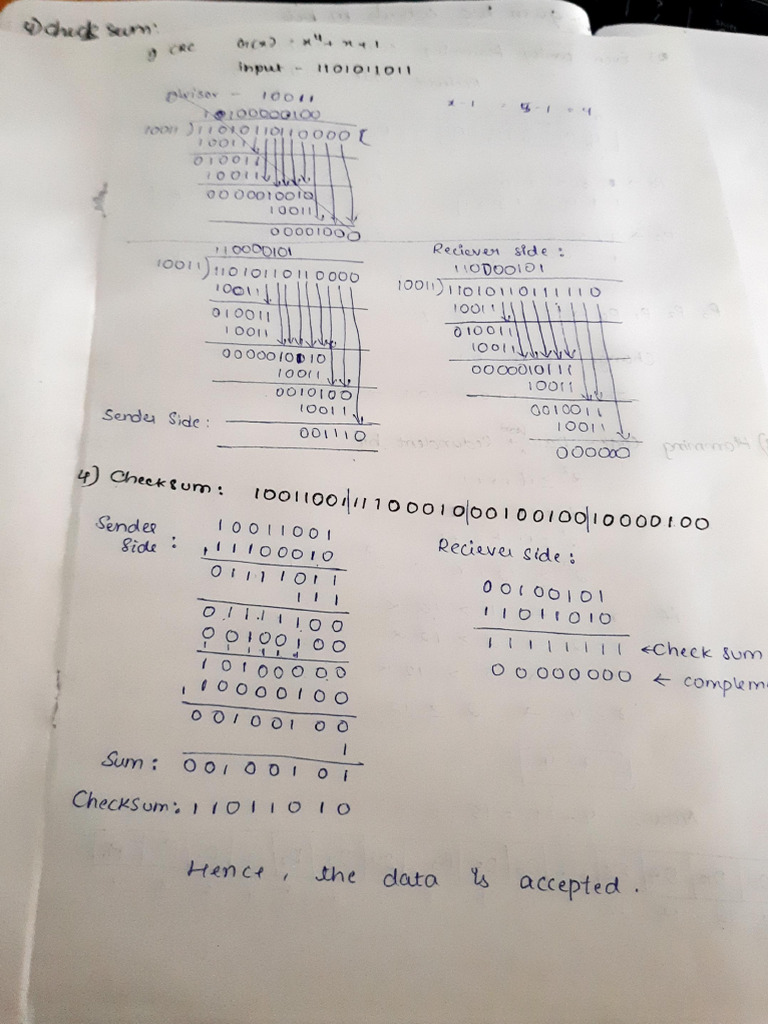 Check sum:
CRC G(x) = x⁴ + x + 1
input - 1101011011
Divisor - 10011
10100000100
10011 ) 11010110110000
10011
010011
10011
0000010010
10011
00001000
11000101
10011 ) 11010110110000
10011
010011
10011
0000010010
10011
0010100
10011
Sender Side: 001110
Reciever side:
11000101
10011 ) 11010110111110
10011
010011
10011
0000010111
10011
0010011
10011
000000
4) Checksum: 10011001|11100010|00100100|10000100
Sender Side:
10011001
11100010
01111011
111
01111100
00100100
10100000
10000100
00100100
1
Sum: 00100101
Checksum: 11011010
Reciever side:
00100101
11011010
11111111 ← Check sum
00000000 ←
Hence, the data is accepted.